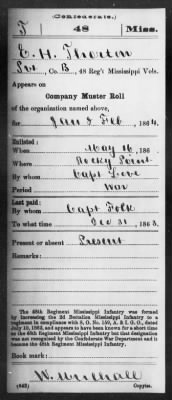 (Confederate.)
T 48 Miss.
E. H. Thornton
Pvt, Co. B, 48 Reg't Mississippi Vols.
Appears on
Company Muster Roll
of the organization named above,
for Jan & Feb, 1864.
Enlisted:
When May 16, 186
Where Rocky Point
By whom Capt Love
Period War
Last paid:
By whom Capt Folk
To what time Dec 31, 1863.
Present or absent Present
Remarks:
The 48th Regiment Mississippi Infantry was formed
by increasing the 2d Battalion Mississippi Infantry to a
regiment in compliance with S. O. No. 159, A. & I. G. O., dated
and appears to have been known for a short time
as the 48th Regiment Mississippi Infantry but that designation
was not recognized by the Confederate War Department and it
became the 48th Regiment Mississippi Infantry.
Book mark:
(642) Copyist.